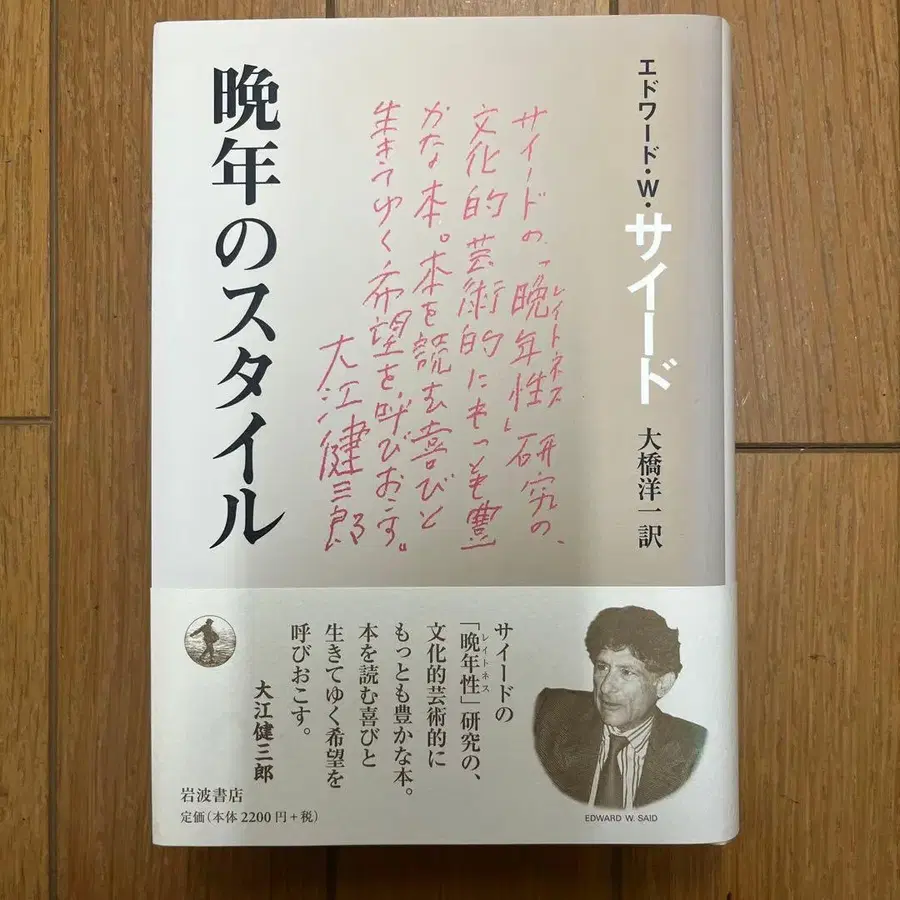 エドワード・W・サイード
大橋洋一訳
サイードの「晩年性」研究の、
レイトネス
文化的芸術的にもっとも豊
かな本。本を読む喜びと
生きてゆく希望を、呼びおこす。
大江健三郎
晩年のスタイル
サイードの
「晩年性」研究の、
レイトネス
文化的芸術的に
もっとも豊かな本。
本を読む喜びと
生きてゆく希望を
呼びおこす。
大江健三郎
岩波書店
定価(本体2200円+税)
EDWARD W. SAID